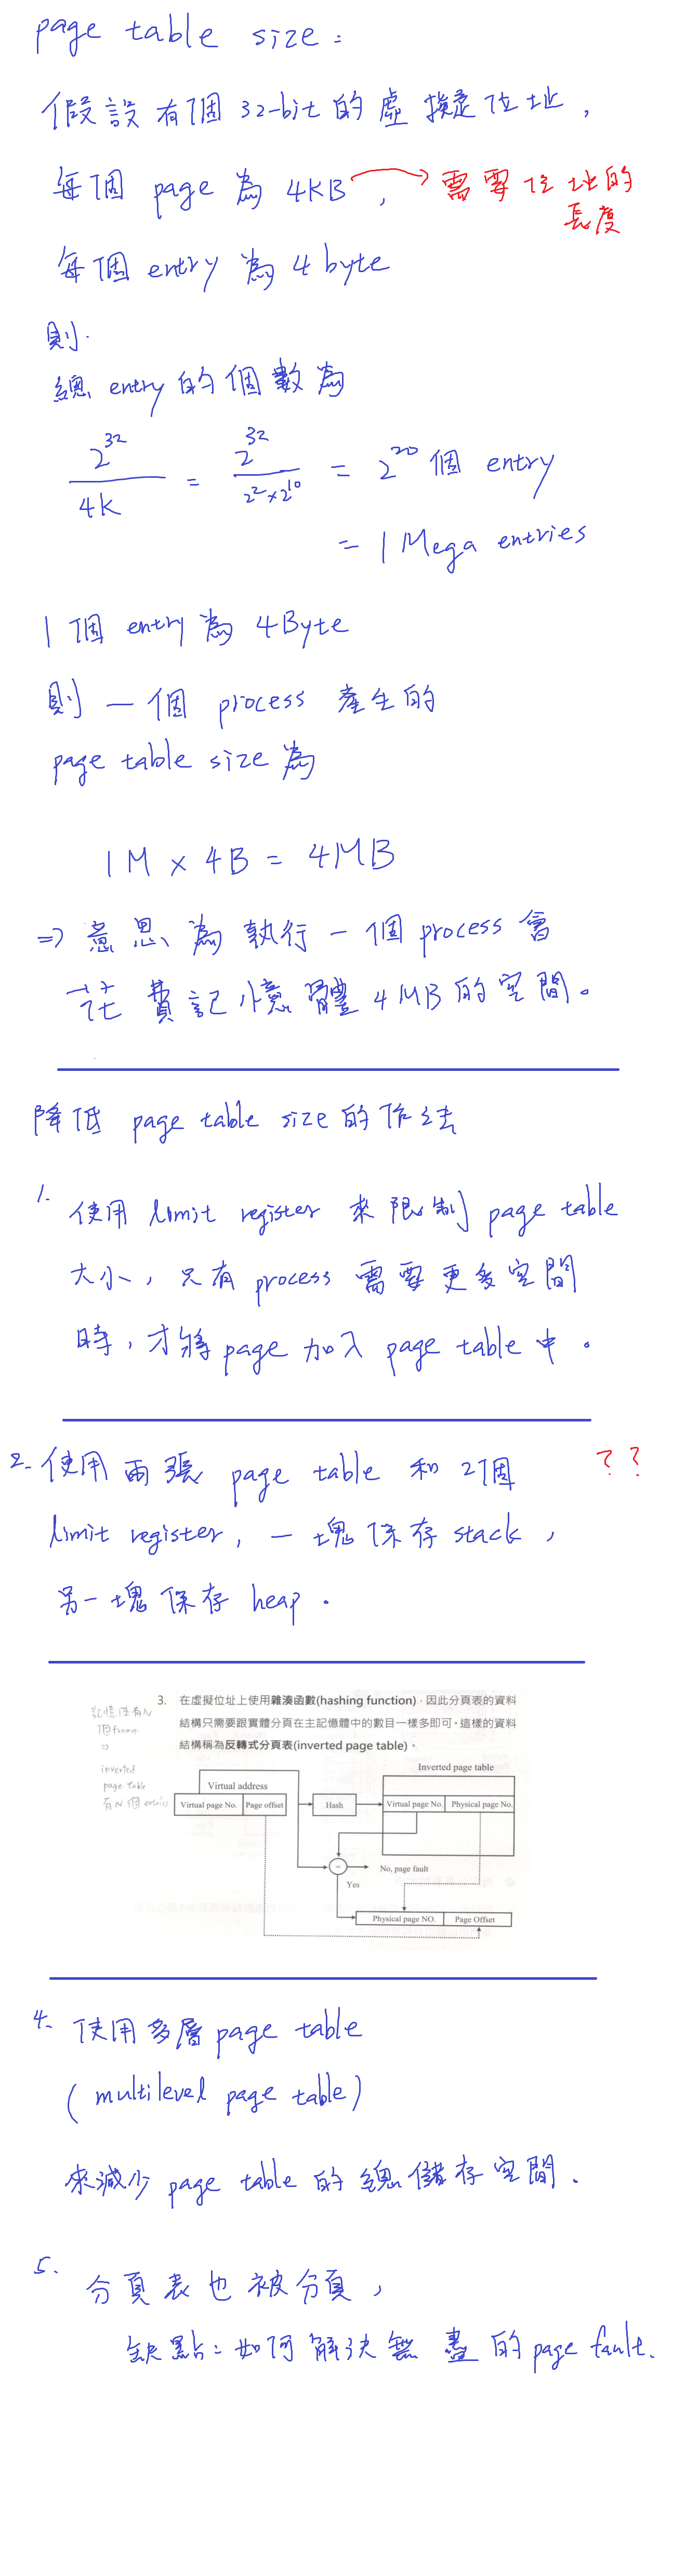 page table size =
假設有1個 32-bit 的虛擬位址,
每個 page 為 4KB, 需要位址的
長度
每個 entry 為 4 byte
則
總 entry 的個數為
2^32 / 4K = 2^32 / 2^2 × 2^10 = 2^20 個 entry
= 1 Mega entries
1 個 entry 為 4Byte
則一個 process 產生的
page table size 為
1M × 4B = 4MB
⇒ 意思為執行一個 process 會
花費記憶體 4MB 的空間。
降低 page table size 的作法
1. 使用 limit register 來限制 page table
大小, 只有 process 需要更多空間
時, 才將 page 加入 page table 中。
2. 使用兩張 page table 和 2個 ??
limit register, 一塊保存 stack,
另一塊保存 heap.
3. 在虛擬位址上使用雜湊函數(hashing function),因此分頁表的資料
結構只需要跟實體分頁在主記憶體中的數目一樣多即可。這樣的資料
結構稱為反轉式分頁表(inverted page table)。
記憶体有N
1個frame
⇒
inverted
page table
有N個 entries
Inverted page table
Virtual address
Virtual page No. Page offset Hash Virtual page No. Physical page No.
= No, page fault
Yes
Physical page NO. Page Offset
4. 使用多層 page table
(multilevel page table)
來減少 page table 的總儲存空間.
5. 分頁表也被分頁,
缺點= 如何解決無盡的 page fault.